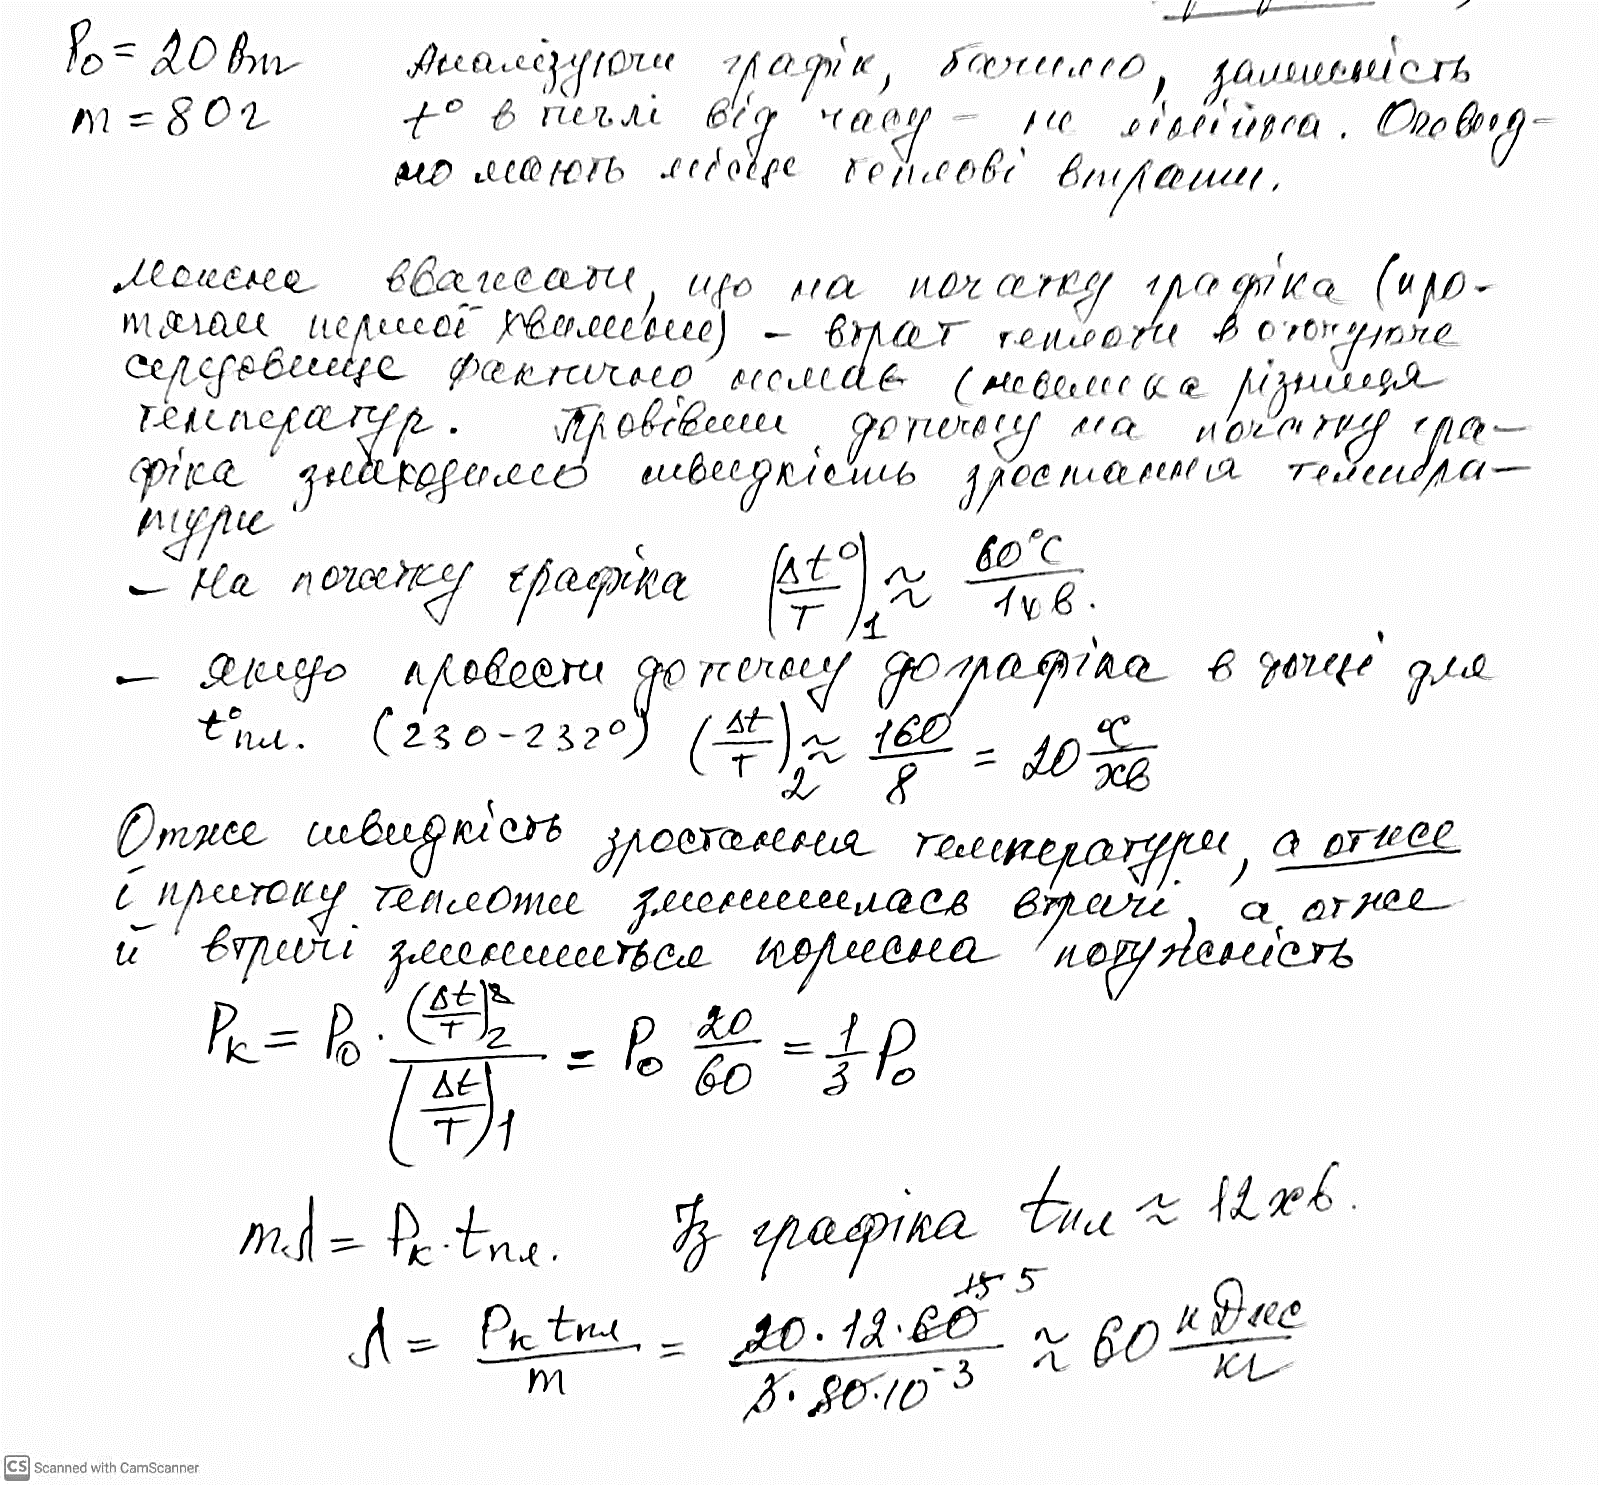 P₀ = 20 Вт Аналізуючи графік, бачимо, залежність
m = 80 г t° в печі від часу – не лінійна. Очевид-
но мають місце теплові втрати.
Можна вважати, що на початку графіка (про-
тягом першої хвилини) – втрат теплоти в оточуюче
середовище фактично немає (невелика різниця
температур. Провівши дотичну на початку гра-
фіка знаходимо швидкість зростання темпера-
тури
– На початку графіка (Δt°/T)₁ ≈ 60°C/1хв.
– якщо провести дотичну до графіка в точці для
t°пл. (230-232°) (Δt/T)₂ ≈ 160/8 = 20 °C/хв
Отже швидкість зростання температури, а отже
і притоку теплоти зменшилась втричі, а отже
й втричі зменшиться корисна потужність
Pк = P₀ · (Δt/T)₂ / (Δt/T)₁ = P₀ 20/60 = 1/3 P₀
mλ = Pк · tпл. Із графіка tпл ≈ 12 хв.
λ = Pк tпл / m = 20 · 12 · 60 / 3 · 80 · 10⁻³ ≈ 60 кДж/кг
CS Scanned with CamScanner